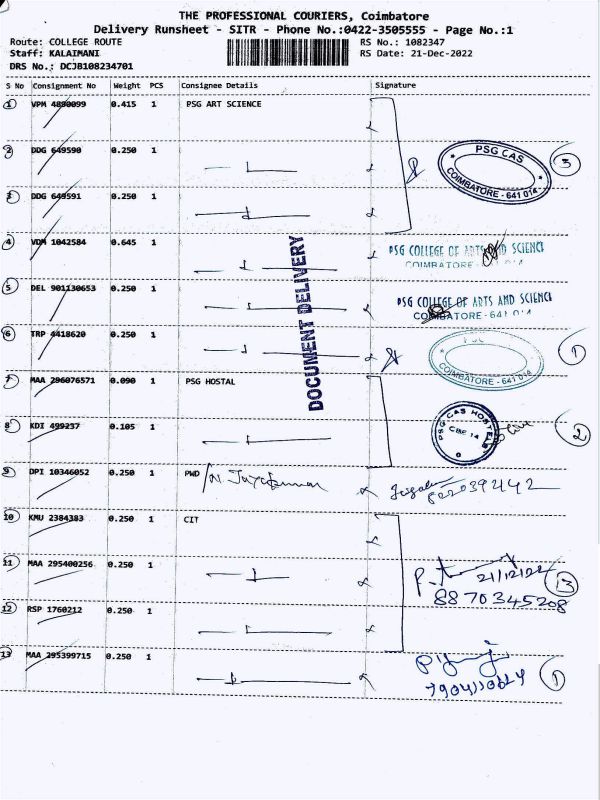 THE PROFESSIONAL COURIERS, Coimbatore
Delivery Runsheet - SITR - Phone No.:0422-3505555 - Page No.:1
Route: COLLEGE ROUTE
RS No.: 1082347
Staff: KALAIMANI
RS Date: 21-Dec-2022
DRS No.: DCJB108234701
S No Consignment No Weight PCS Consignee Details Signature
1 VPM 4890099 0.415 1 PSG ART SCIENCE
2 DDG 649590 0.250 1
PSG CAS
COIMBATORE - 641 014
3 DDG 649591 0.250 1
4 VDM 1042584 0.645 1
PSG COLLEGE OF ARTS AND SCIENCE
COIMBATORE
5 DEL 901130653 0.250 1
PSG COLLEGE OF ARTS AND SCIENCE
COIMBATORE-641 014
DOCUMENT DELIVERY
6 TRP 4418620 0.250 1
COIMBATORE - 641 014
1
7 MAA 296076571 0.090 1 PSG HOSTAL
8 KDI 499237 0.105 1
PSG CAS HOSTELS
CBE 14
2
9 DPI 10346052 0.250 1 PWD N. Jayakumar
10 KMU 2384383 0.250 1 CIT
11 MAA 295400256 0.250 1
21/12/22
13
8870345208
12 RSP 1760212 0.250 1
13 MAA 295399715 0.250 1
1